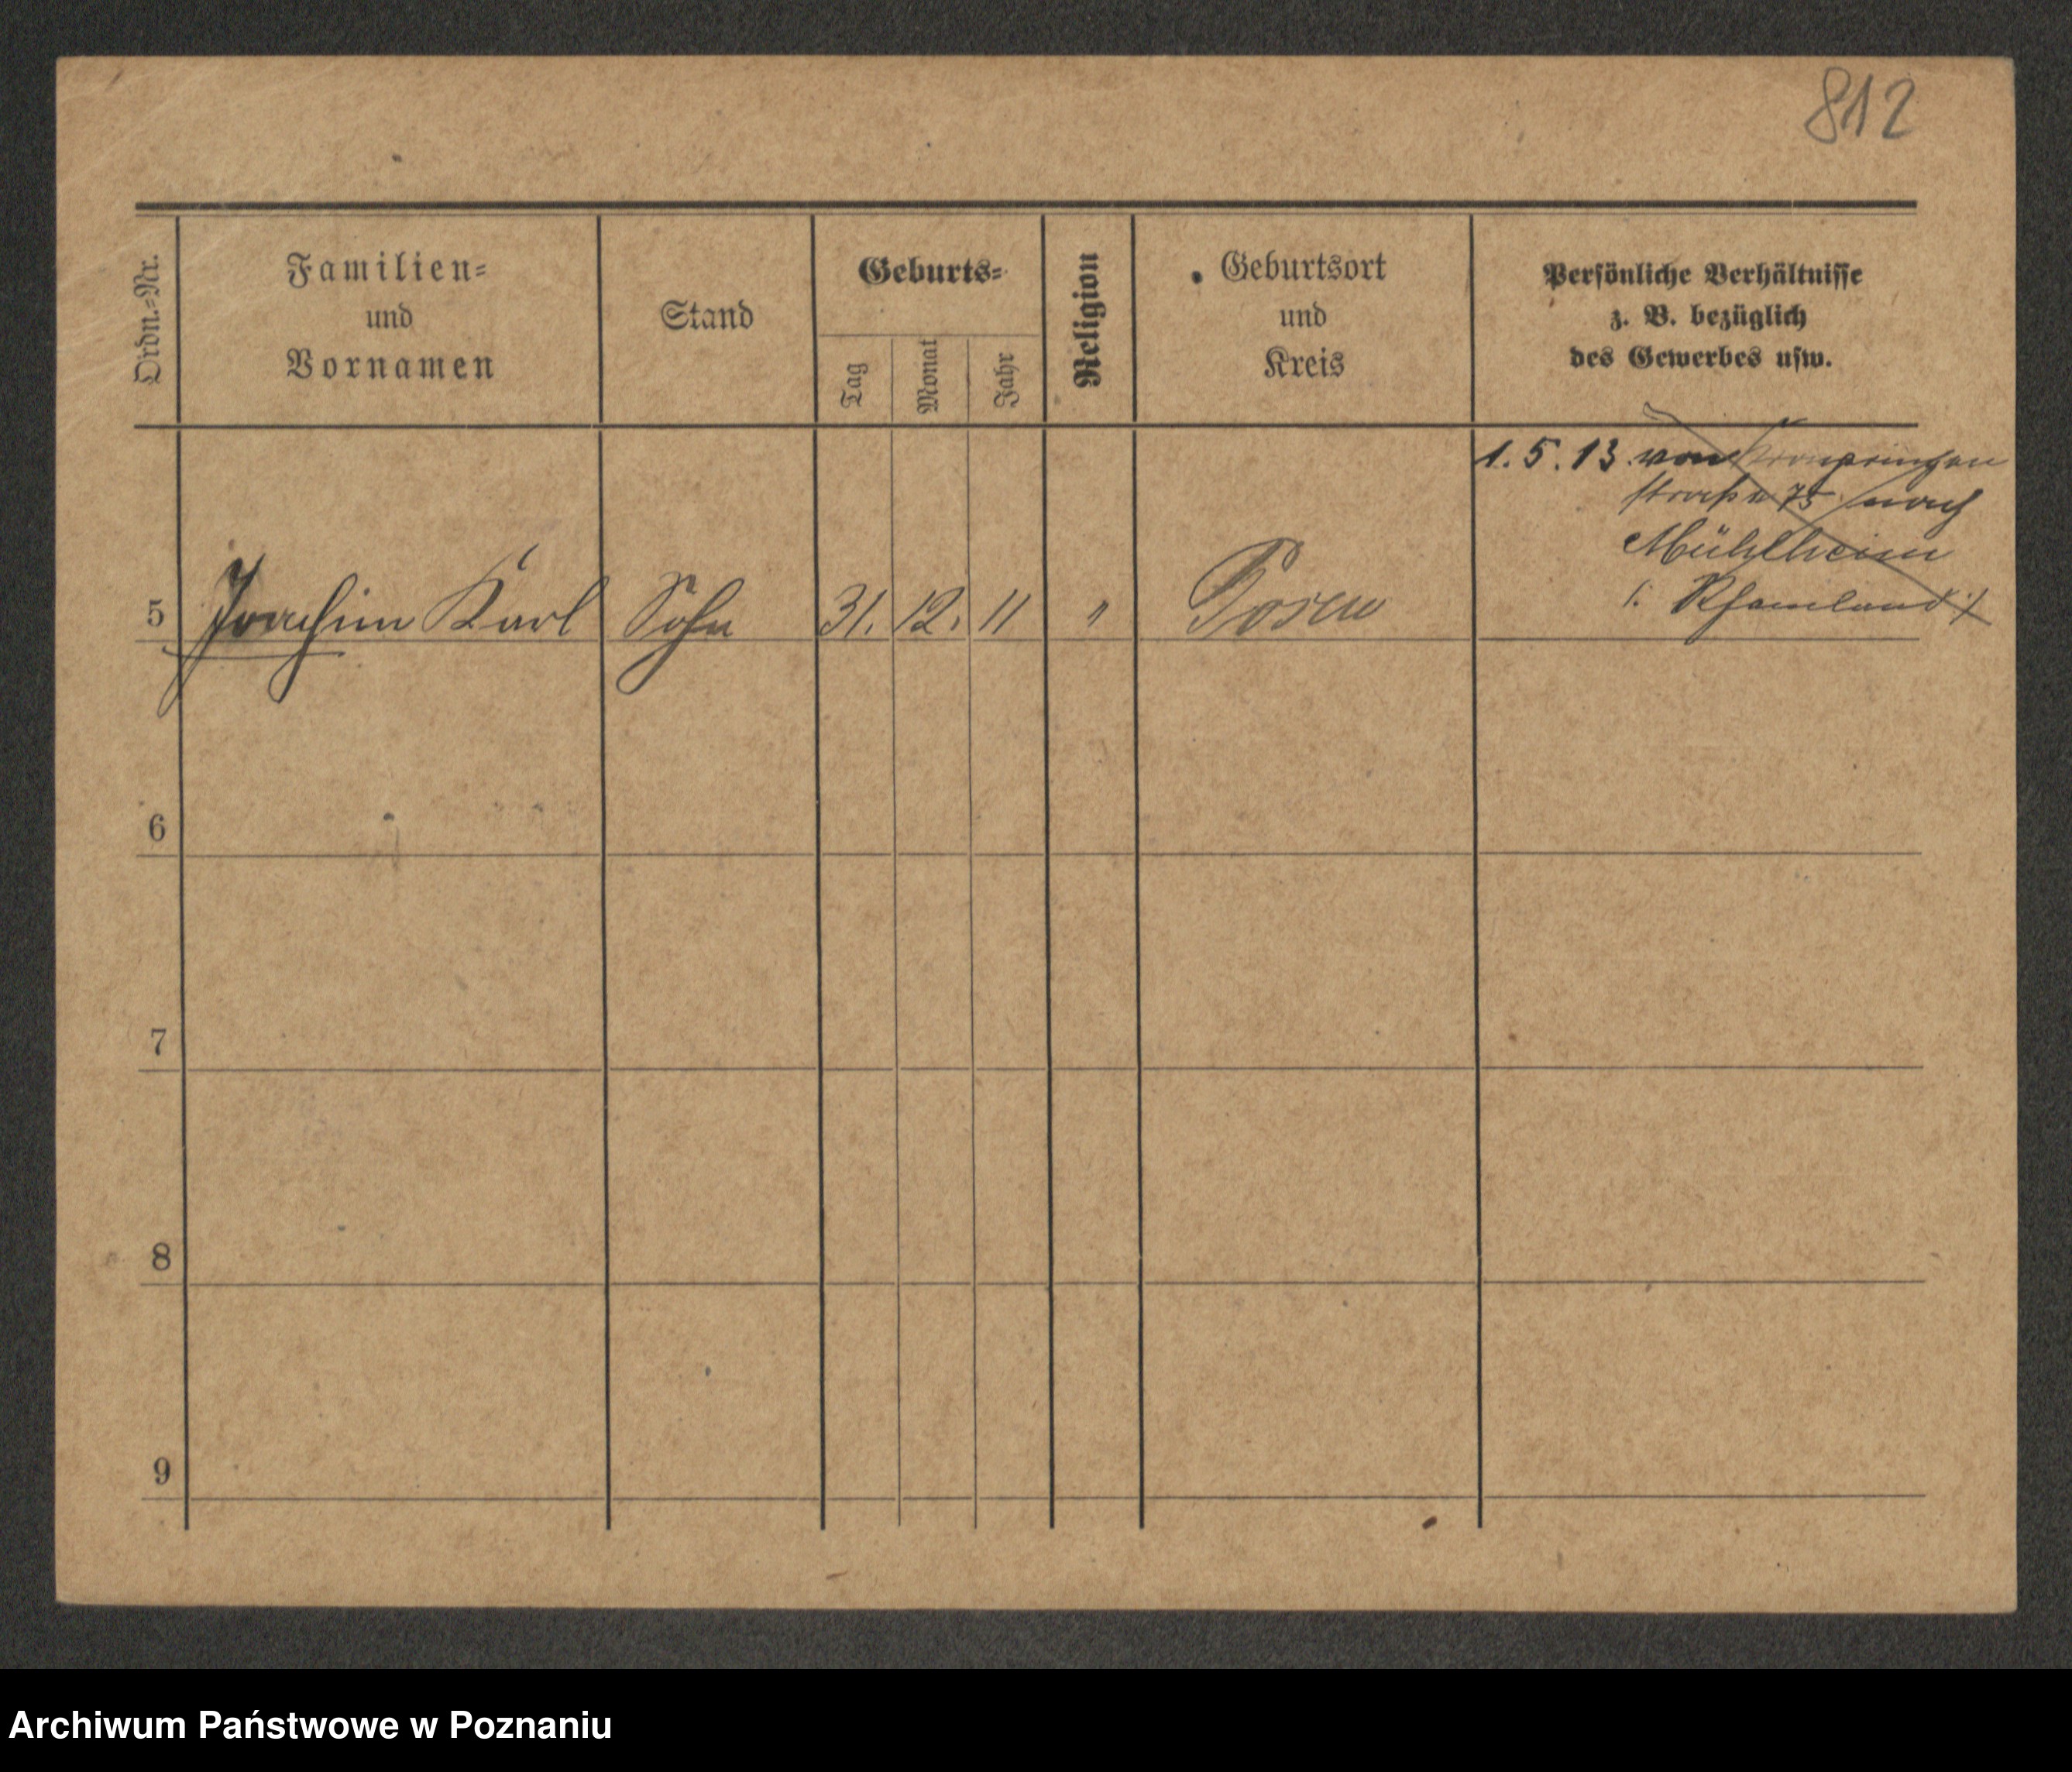 812
Ordn.-Nr.
Familien-
und
Vornamen
Stand
Geburts-
Tag
Monat
Jahr
Religion
Geburtsort
und
Kreis
Persönliche Verhältnisse
z. B. bezüglich
des Gewerbes usw.
1.5.13. von Kronprinzen
straße 75 nach
Mühlheim
5 Joachim Karl Sohn 31. 12. 11 " Posen
/. Rheinland /
6
7
8
9
Archiwum Państwowe w Poznaniu